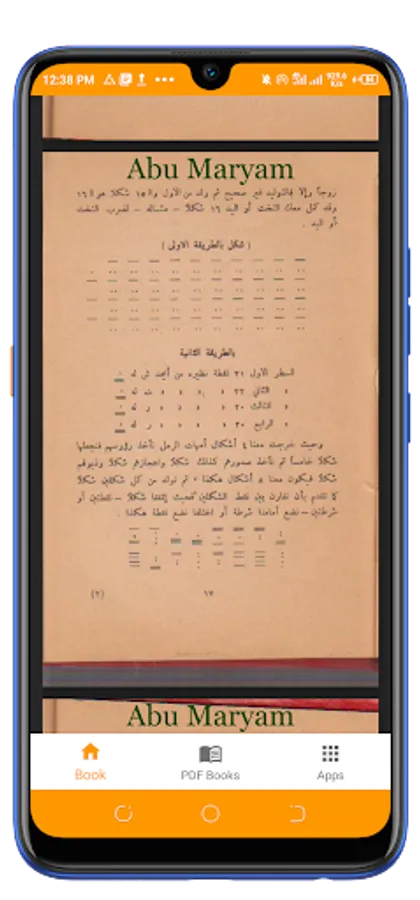 12:38 PM
Abu Maryam
زوجاً وإلا فالتوليد غير صحيح ثم ولد من الاول والـ ١٥ شكلا هو الـ ١٦
وقد كمل معك التخت أو اليد ١٦ شكلا –
أو اليد .
( شكل بالطريقة الاولى )
بالطريقة الثانية
السطر الأول ٣١ نقطة نظيره من أبجد ش له
» الثاني ٢٣ » » » » ث له
» الثالث ٢٠ » » » » ر له
» الرابع ٢٠ » » » » ر له
وحيث خرجت معنا ٤ أشكال أمهات الرمل تأخذ رؤوسهم فتجعلها
شكلا خامساً ثم تأخذ صدورهم كذلك شكلا واعجازهم شكلا وذيولهم
شكلا فيكون معنا ٨ أشكال هكذا . ثم نولد من كل شكلين شكلا
كما تقدم بأن تقارن بين نقط الشكلين فحيث إتفقا شكلا – نقطتين أو
شرطتين – نضع أمامنا شرطة أو إختلفا نضع نقطة هكذا .
١٧
(٢)
Abu Maryam
Book
PDF Books
Apps